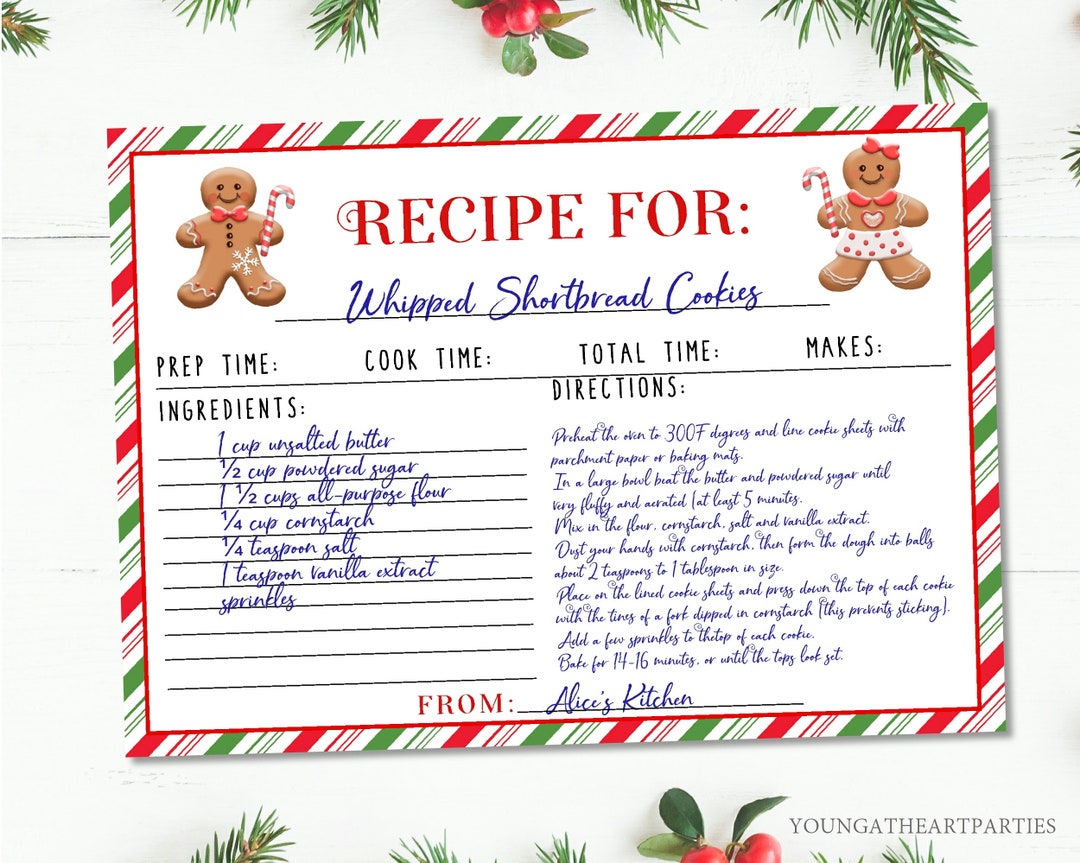 RECIPE FOR:
Whipped Shortbread Cookies
PREP TIME: COOK TIME: TOTAL TIME: MAKES:
INGREDIENTS:
1 cup unsalted butter
½ cup powdered sugar
1 ½ cups all-purpose flour
¼ cup cornstarch
¼ teaspoon salt
1 teaspoon vanilla extract
sprinkles
DIRECTIONS:
Preheat the oven to 300F degrees and line cookie sheets with
parchment paper or baking mats.
In a large bowl beat the butter and powdered sugar until
very fluffy and aerated (at least 5 minutes.
Mix in the flour, cornstarch, salt and vanilla extract.
Dust your hands with cornstarch, then form the dough into balls
about 2 teaspoons to 1 tablespoon in size.
Place on the lined cookie sheets and press down the top of each cookie
with the tines of a fork dipped in cornstarch (this prevents sticking).
Add a few sprinkles to thetop of each cookie.
Bake for 14-16 minutes, or until the tops look set.
FROM: Alice's Kitchen
YOUNGATHEARTPARTIES